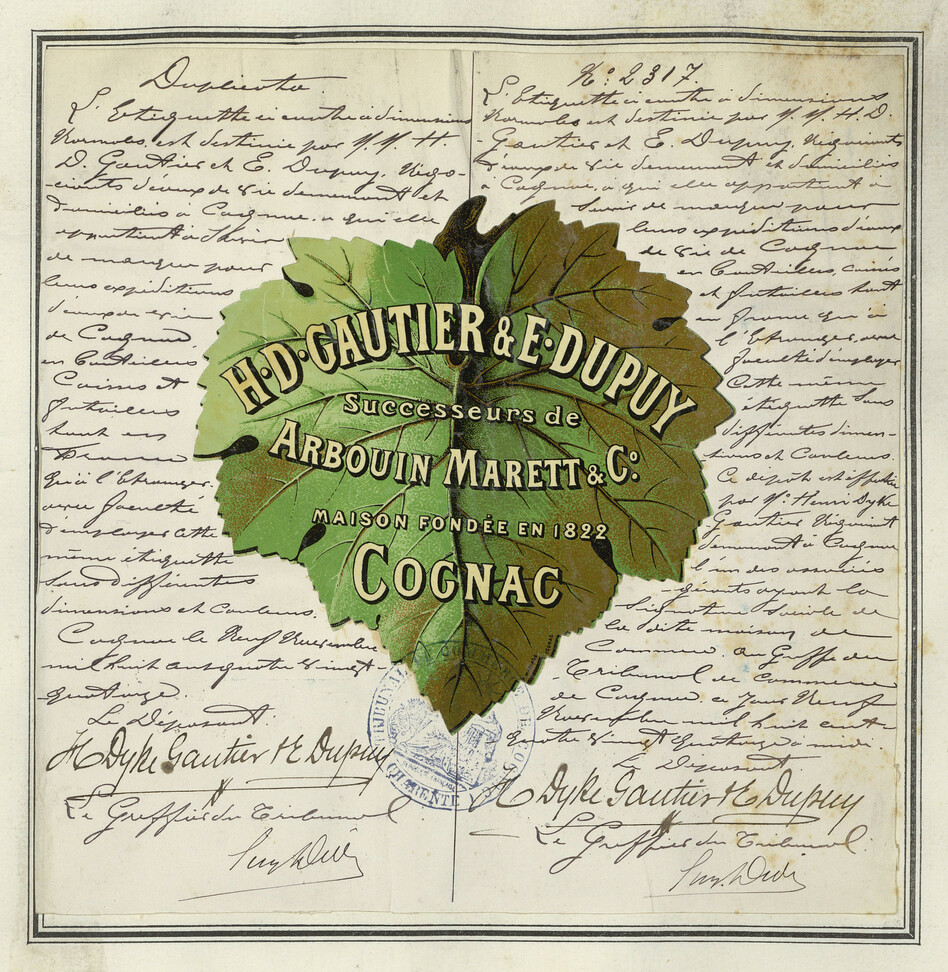 Duplicata.
L'Etiquette ci contre à dimensions
Normales, est destinée par M M. H.
D. Gautier et E. Dupuy, Négo-
-ciants d'eaux de vie demeurant et
domiciliés à Cognac, à qui elle
appartient à Servir
de marque pour
leurs expéditions
d'eaux de vie
de Cognac
en Bouteilles
Caisses et
futailles
tant en
France
qu'à l'Etranger,
avec faculté
d'employer cette
même étiquette
sous différentes
dimensions et couleurs.
Cognac le Neuf Novembre
mil huit cent quatre Vingt
quatorze.
Le Déposant:
H Dyke Gautier & E Dupuy
Le Greffier du Tribunal
No. 2317.
L'Etiquette ci contre à dimensions
Normales est destinée par M. M. H. D.
Gautier et E. Dupuy, Négociants
d'eaux de vie demeurant et domiciliés
à Cognac, à qui elle appartient à
Servir de marque pour
leurs expéditions d'eaux
de vie de Cognac
en Bouteilles, caisses
et futailles tant
en france qu'à
l'Etranger, avec
faculté d'employer
Cette même
étiquette sous
différentes dimen-
sions et Couleurs.
Ce dépôt est effectué
par Mr. Henri Dyke
Gautier Négociant
demeurant à Cognac
l'un des associés
-gérants ayant la
Signature Sociale de
la dite maison de
Commerce. au Greffe du
Tribunal de Commerce
de Cognac ce Jour Neuf
Novembre mil huit cent
quatre Vingt quatorze à midi.
Le Déposant.
H Dyke Gautier & E Dupuy
Le Greffier du Tribunal.
H·D·GAUTIER & E·DUPUY
Successeurs de
ARBOUIN MARETT & Co.
MAISON FONDÉE EN 1822
COGNAC
TRIBUNAL DE COMMERCE DE COGNAC
CHARENTE